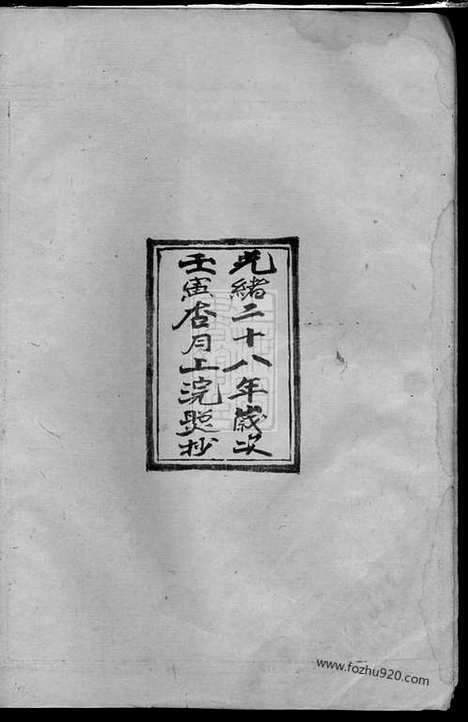 光緒二十八年歲次
壬寅杏月上浣謄抄
www.fozhu920.com